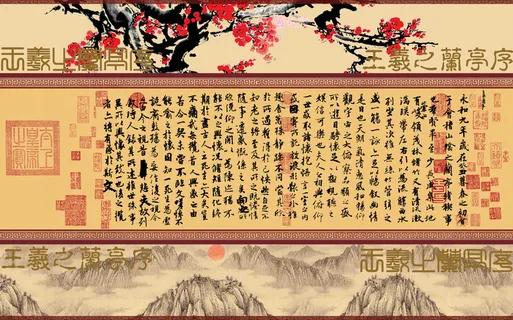 王羲之蘭亭序
王羲之蘭亭序
永和九年歲在癸丑暮春之初會
于會稽山陰之蘭亭脩禊事
也羣賢畢至少長咸集此地
有崇山峻領茂林脩竹又有清流激
湍暎帶左右引以為流觴曲水
列坐其次雖無絲竹管弦之
盛一觴一詠亦足以暢敘幽情
是日也天朗氣清惠風和暢仰
觀宇宙之大俯察品類之盛
所以遊目騁懷足以極視聽之
娛信可樂也夫人之相與俯仰
一世或取諸懷抱悟言一室之內
或因寄所託放浪形骸之外雖
趣舍萬殊靜躁不同當其欣
於所遇蹔得於己快然自足不
知老之將至及其所之既惓情
隨事遷感慨係之矣向之所
欣俛仰之間以為陳迹猶不
能不以之興懷況脩短隨化終
期於盡古人云死生亦大矣豈
不痛哉每攬昔人興感之由
若合一契未嘗不臨文嗟悼不
能喻之於懷固知一死生為虛
誕齊彭殤為妄作後之視今
亦由今之視昔悲夫故列
敘時人錄其所述雖世殊事
異所以興懷其致一也後之攬
者亦將有感於斯文
王羲之蘭亭序
王羲之蘭亭序